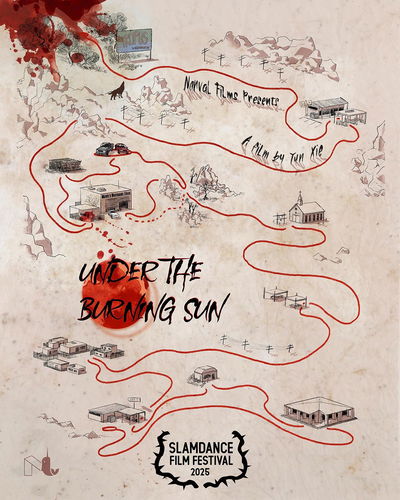 Narval Films Presents
A film by Yun Xie
UNDER THE
BURNING SUN
SLAMDANCE
FILM FESTIVAL
2025